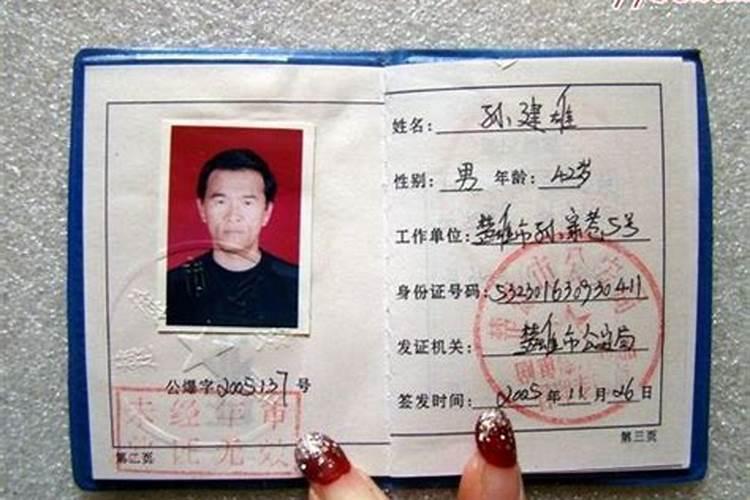 公爆字2005137号
未经年审
此证无效
第二页
姓名：孙建雄
性别：男 年龄：42岁
工作单位：楚雄市孙家巷5号
身份证号码：532301630930411
发证机关：楚雄市公安局
签发时间：2005年11月26日
第三页